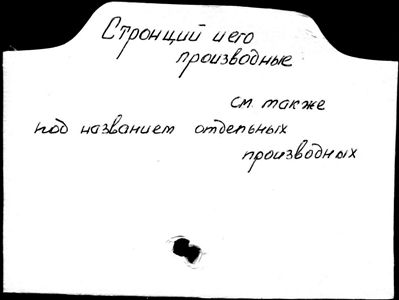 Стронций и его
производные
см. также
под названием отдельных
производных